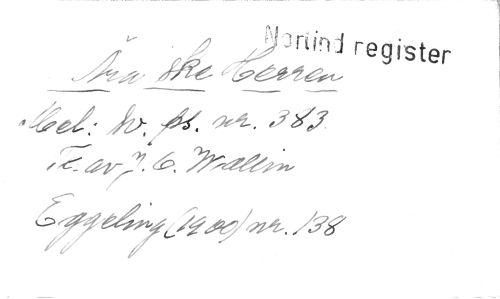 Nortind register
Ära ske Herren
Mel: Sv. ps. nr. 383.
T. av J. O. Wallin
Eggeling (1900) nr. 138